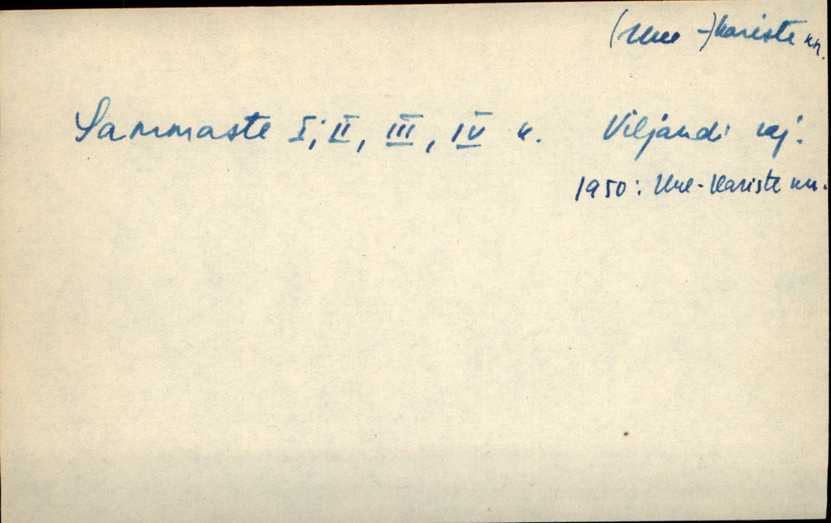 (Uue-)Kariste kn.
Sammaste I, II, III, IV k. Viljandi raj.
1950: Uue-Kariste kn.